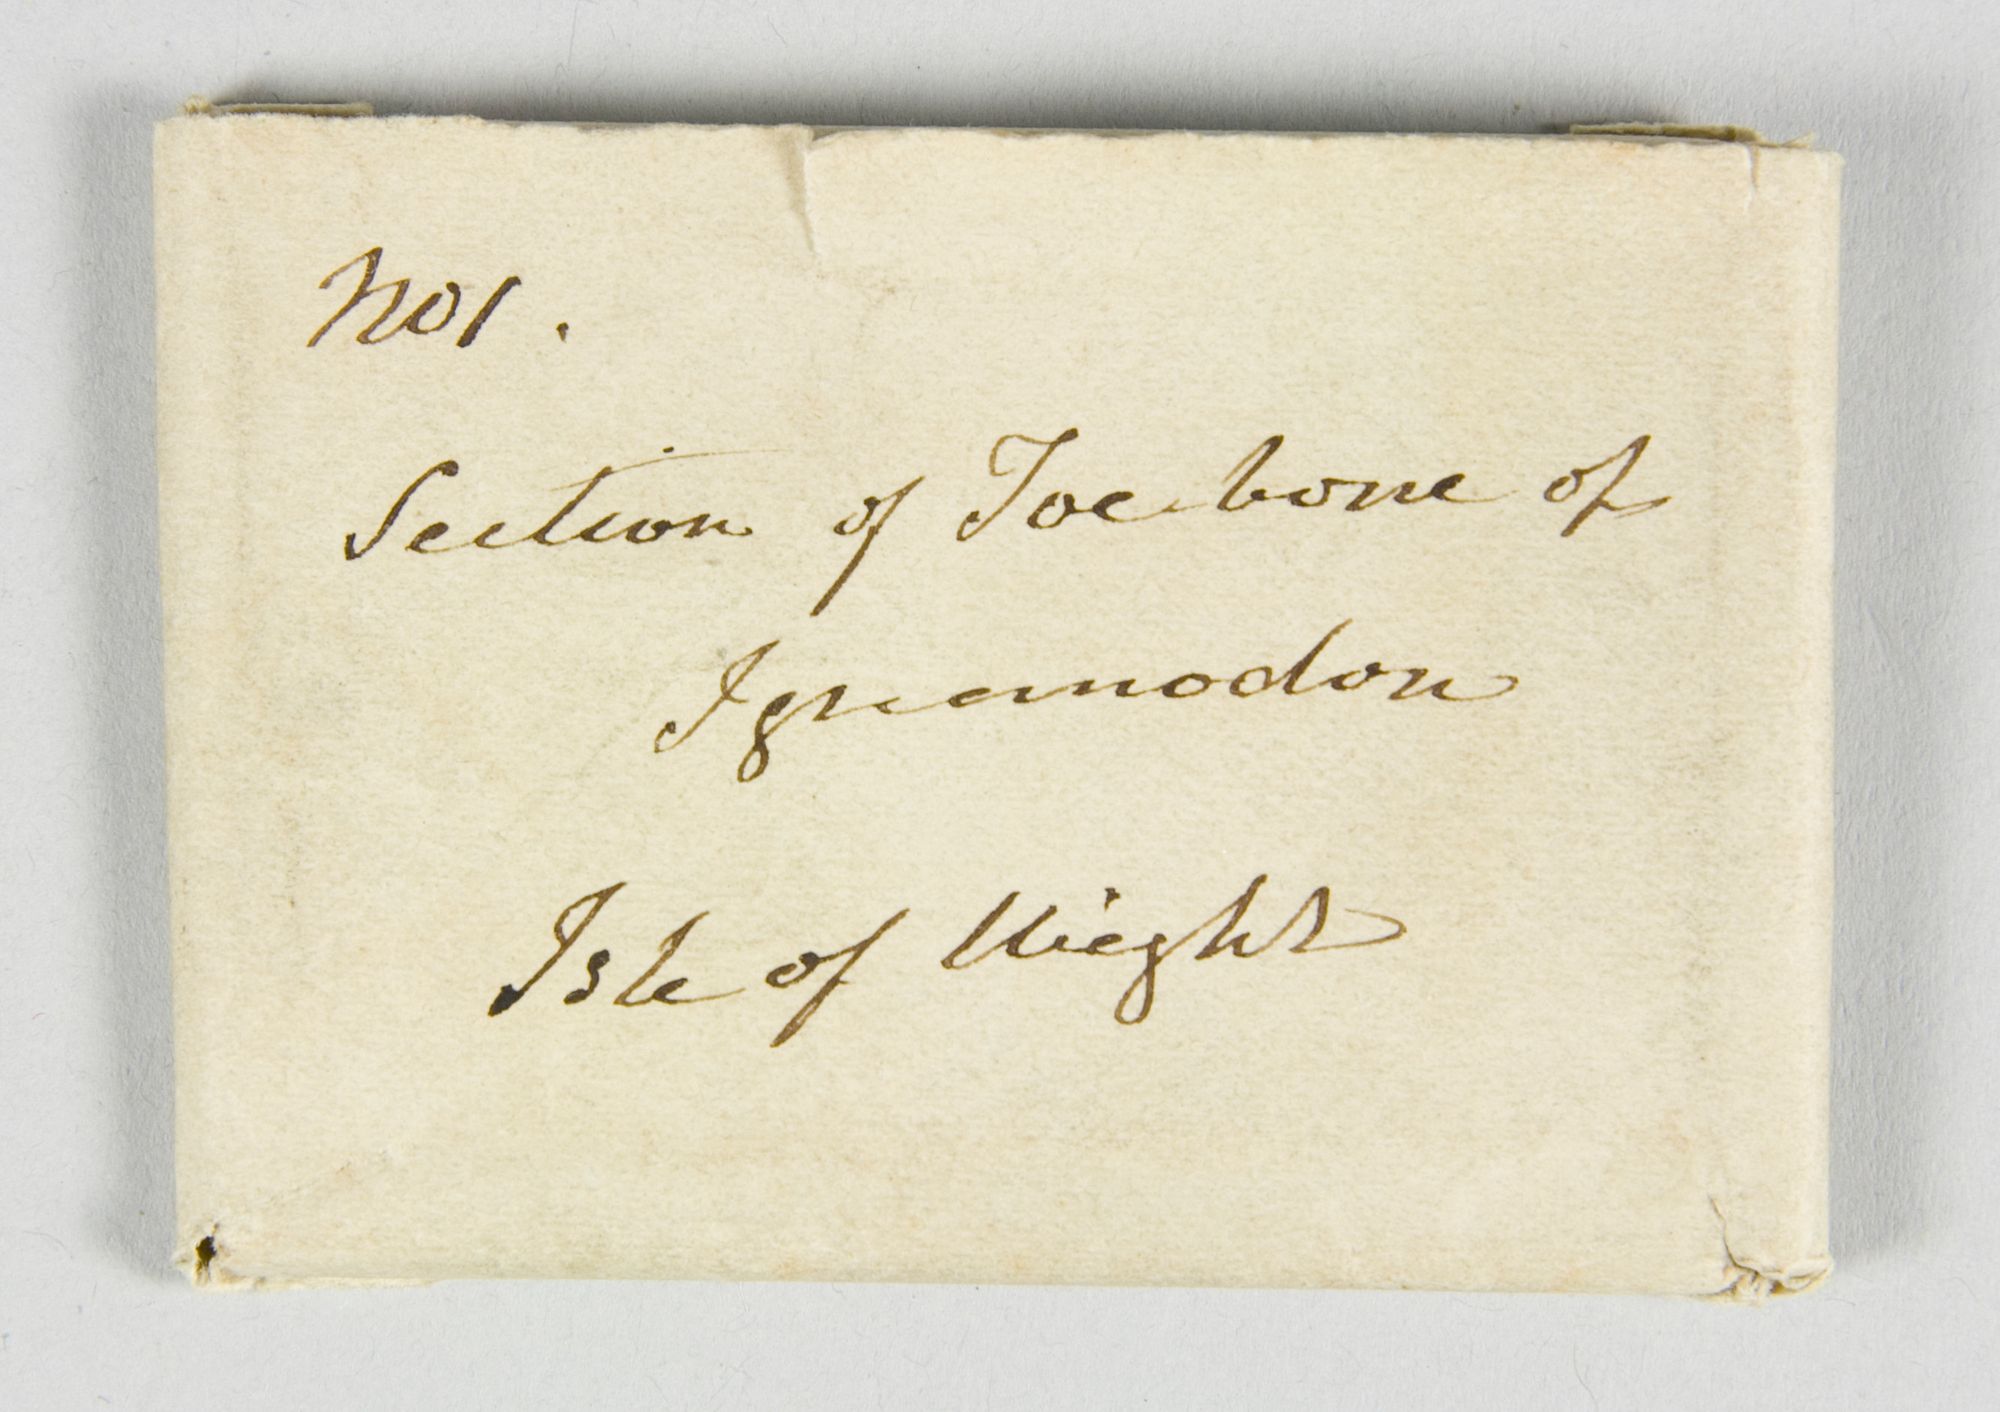 No 1.
Section of Toe bone of
Iguanodon
Isle of Wight